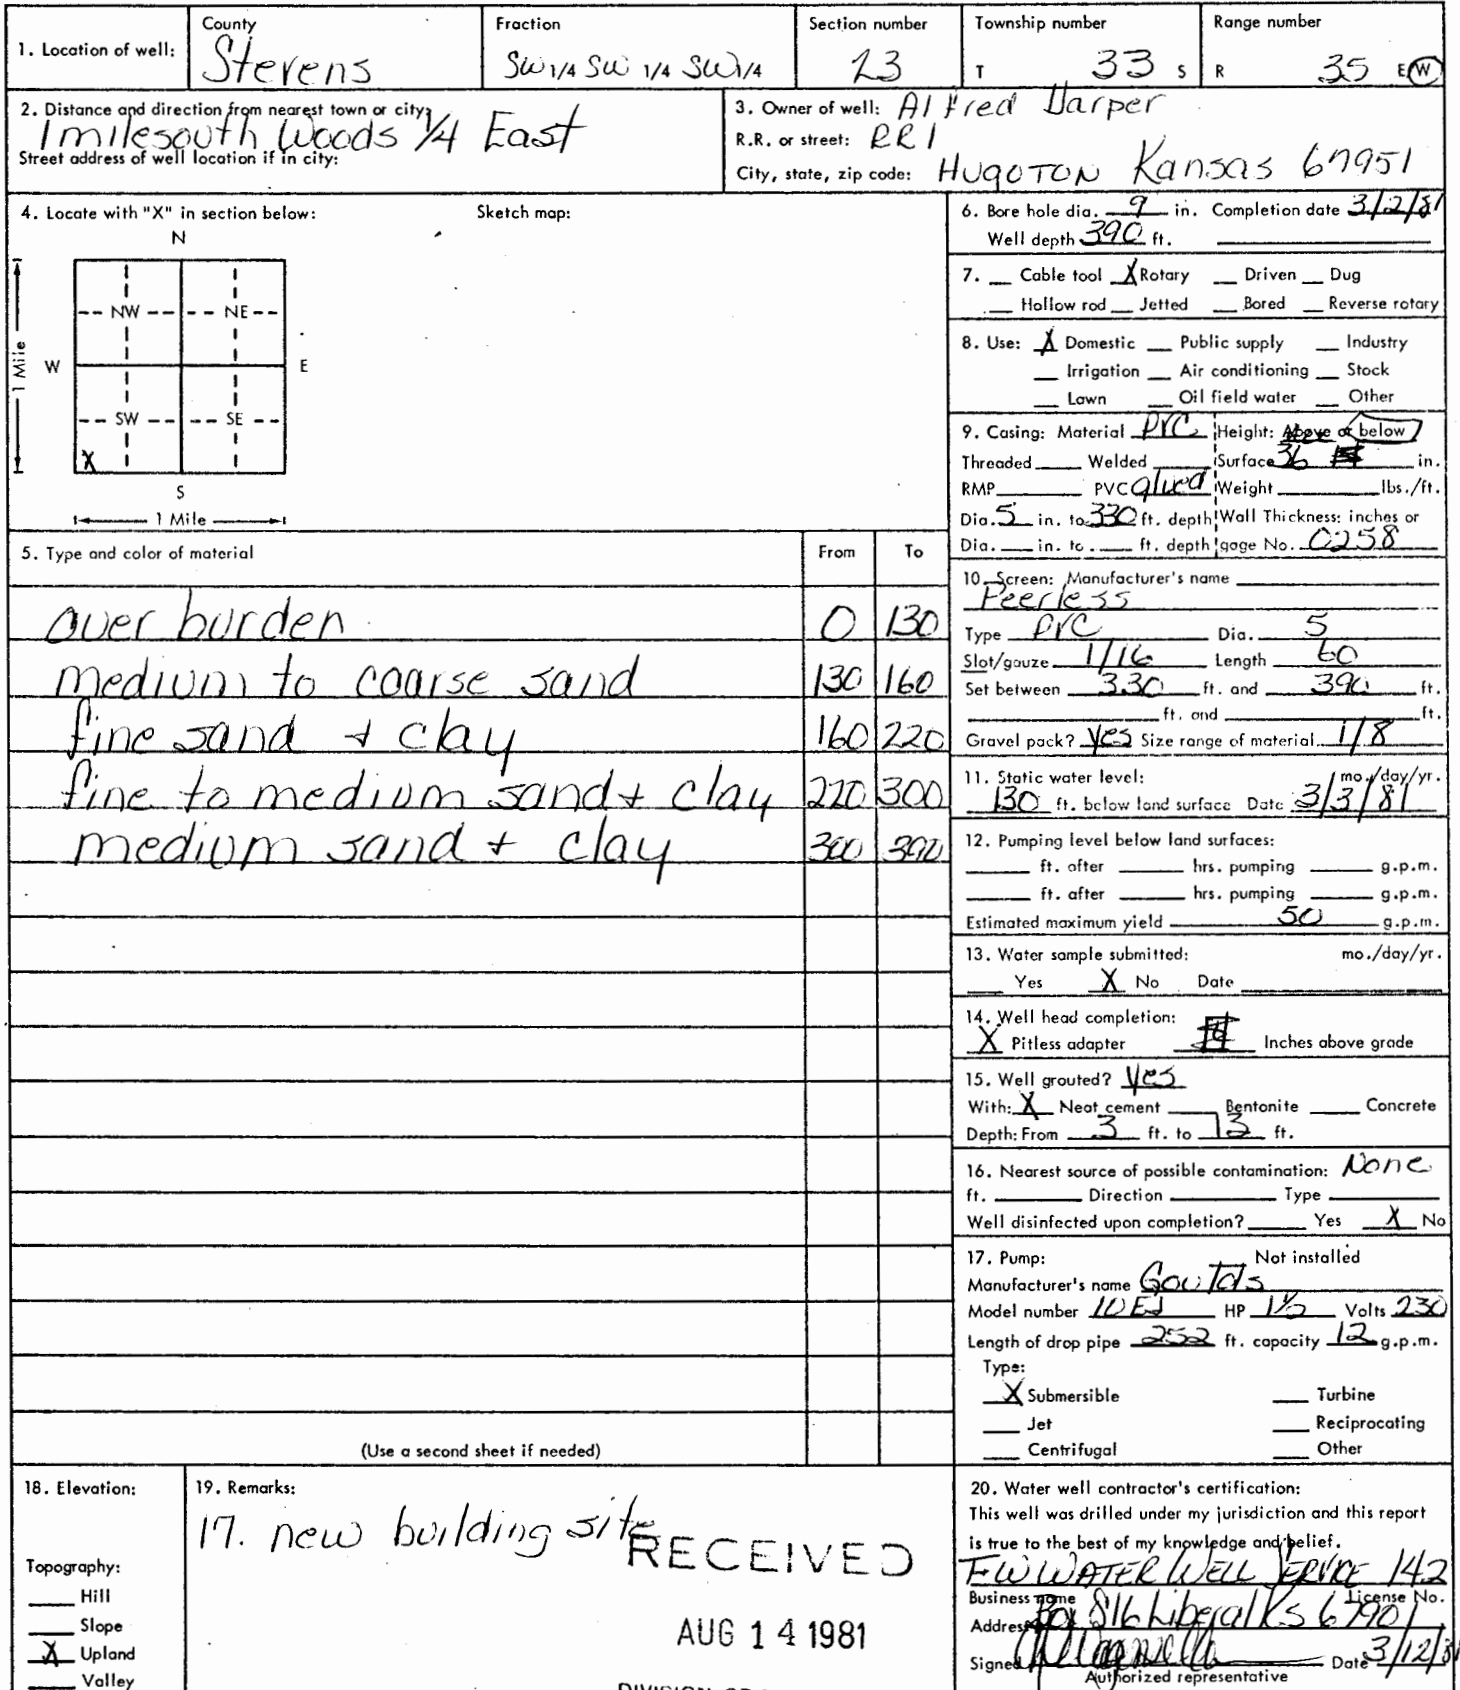 1. Location of well: County Stevens Fraction SW 1/4 SW 1/4 SW 1/4 Section number 23 Township number T 33 S Range number R 35 E W
2. Distance and direction from nearest town or city: 1 mile south Woods 1/4 East
Street address of well location if in city:
3. Owner of well: Alfred Harper
R.R. or street: RR1
City, state, zip code: Hugoton Kansas 67951
4. Locate with "X" in section below: Sketch map:
N
NW NE
W E
1 Mile
SW SE
X
S
1 Mile
5. Type and color of material From To
over burden 0 130
medium to coarse sand 130 160
fine sand + clay 160 220
fine to medium sand + clay 220 300
medium sand + clay 300 390
(Use a second sheet if needed)
6. Bore hole dia. 9 in. Completion date 3/2/81
Well depth 390 ft.
7. __ Cable tool X Rotary __ Driven __ Dug
__ Hollow rod __ Jetted __ Bored __ Reverse rotary
8. Use: X Domestic __ Public supply __ Industry
__ Irrigation __ Air conditioning __ Stock
__ Lawn __ Oil field water __ Other
9. Casing: Material PVC Height: Above or below
Threaded ____ Welded ____ Surface 36 in.
RMP ____ PVC glued Weight ____ lbs./ft.
Dia. 5 in. to 330 ft. depth Wall Thickness: inches or
Dia. __ in. to __ ft. depth gage No. 0258
10. Screen: Manufacturer's name
Peerless
Type PVC Dia. 5
Slot/gauze 1/16 Length 60
Set between 330 ft. and 390 ft.
____ ft. and ____ ft.
Gravel pack? Yes Size range of material 1/8
11. Static water level: mo./day/yr.
130 ft. below land surface Date 3/3/81
12. Pumping level below land surfaces:
____ ft. after ____ hrs. pumping ____ g.p.m.
____ ft. after ____ hrs. pumping ____ g.p.m.
Estimated maximum yield 50 g.p.m.
13. Water sample submitted: mo./day/yr.
__ Yes X No Date
14. Well head completion:
X Pitless adapter Inches above grade
15. Well grouted? Yes
With: X Neat cement ____ Bentonite ____ Concrete
Depth: From 3 ft. to 13 ft.
16. Nearest source of possible contamination: None
ft. ____ Direction ____ Type ____
Well disinfected upon completion? ____ Yes X No
17. Pump: Not installed
Manufacturer's name Goulds
Model number 10EJ HP 1 1/2 Volts 230
Length of drop pipe 252 ft. capacity 12 g.p.m.
Type:
X Submersible __ Turbine
__ Jet __ Reciprocating
__ Centrifugal __ Other
18. Elevation:
Topography:
__ Hill
__ Slope
X Upland
__ Valley
19. Remarks:
17. new building site
RECEIVED
AUG 14 1981
20. Water well contractor's certification:
This well was drilled under my jurisdiction and this report
is true to the best of my knowledge and belief.
F W WATER WELL SERVICE 142
Business name License No.
Address Box 816 Liberal Ks 67901
Signed Date 3/12/81
Authorized representative